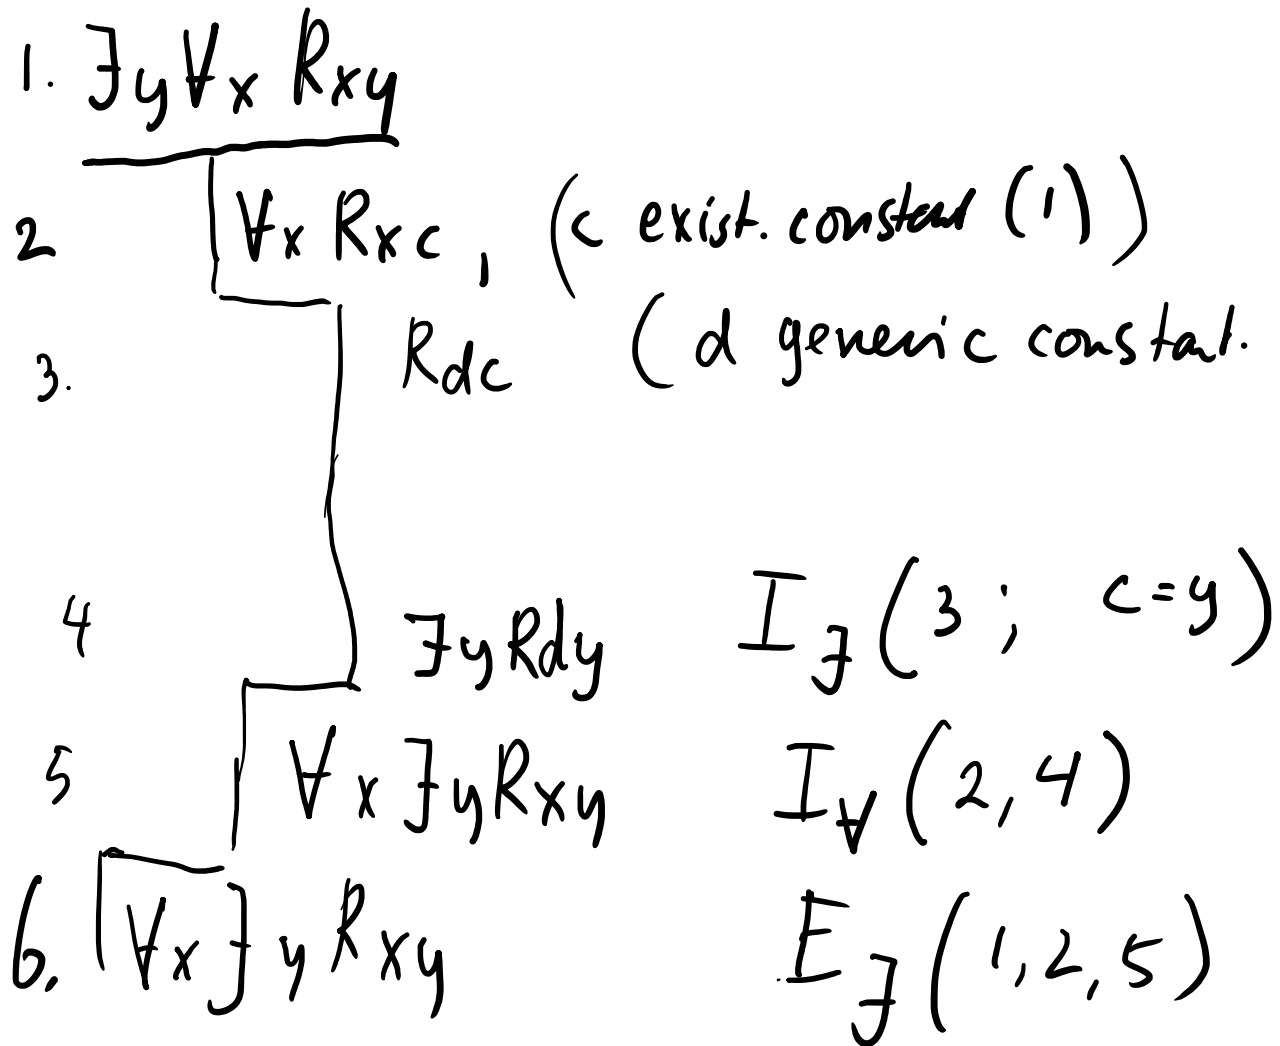 1. ∃y∀x Rxy
2 ∀x Rxc, (c exist. constant (1))
3. Rdc (d generic constant.
4 ∃y Rdy I∃(3; c=y)
5 ∀x ∃y Rxy I∀(2,4)
6. ∀x∃y Rxy E∃(1,2,5)